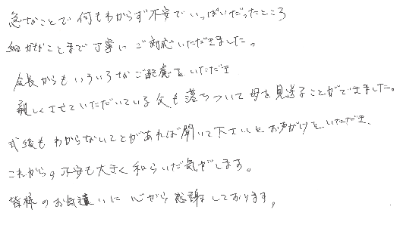 急なことで何もわからず不安でいっぱいだったところ
細かなことまで丁寧にご対応いただきました。
会長からもいろいろなご配慮をいただき
親しくさせていただいている父も落ちついて母を見送ることができました。
式後もわからないことがあれば聞いて下さいと、お声がけをいただき、
これからの不安も大きく和らいだ気がします。
皆様のお気遣いに心から感謝しております。